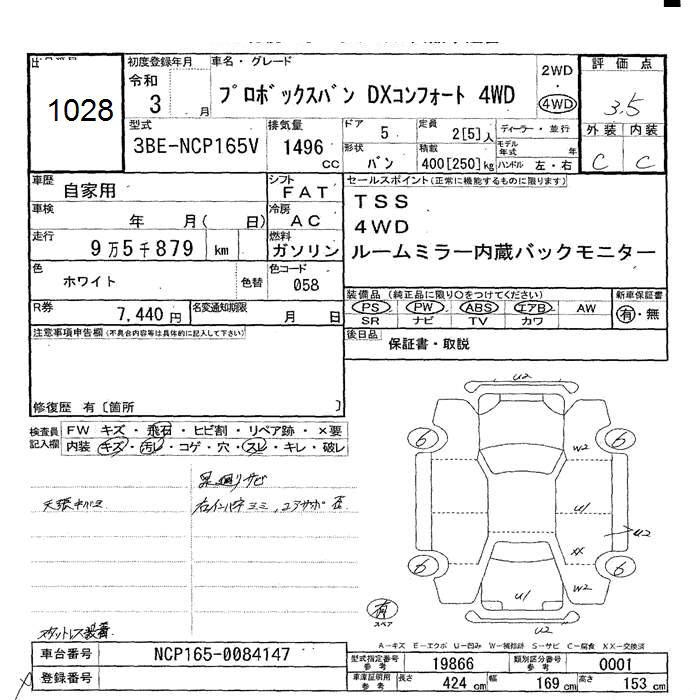 1028
初度登録年月
令和
3 月
車名・グレード
プロボックスバン DXコンフォート 4WD
2WD
・
4WD
評価点
3.5
外装 内装
C C
型式
3BE-NCP165V
排気量
1496 cc
ドア
5
形状
バン
定員
2[5]人
積載
400[250]kg
ディーラー・並行
モデル年式 年
ハンドル 左・右
車歴
自家用
シフト
FAT
車検
年 月( 日)
冷房
AC
走行
9万5千879 km
燃料
ガソリン
色
ホワイト
色替
色コード
058
R券
7,440円
名変通知期限
月 日
セールスポイント(正常に機能するものに限ります)
TSS
4WD
ルームミラー内蔵バックモニター
装備品(純正品に限り○をつけてください)
PS PW ABS エアB AW
SR ナビ TV カワ
新車保証書
有・無
後日品
保証書・取説
注意事項申告欄(不具合内容等は具体的に記入して下さい)
修復歴 有〔箇所 〕
検査員記入欄
FW キズ・飛石・ヒビ割・リペア跡・×要
内装 キズ・汚レ・コゲ・穴・スレ・キレ・破レ
スタットレス装着
U2
6 6
W2
U1
U2
XX
6 6
U1 W2
U2
有
スペア
A-キズ E-エクボ U-凹み W-補修跡 S-サビ C-腐食 XX-交換済
車台番号
NCP165-0084147
登録番号
型式指定番号参考
19866
類別区分番号参考
0001
車庫証明用参考
長さ 424cm 幅 169cm 高さ 153cm